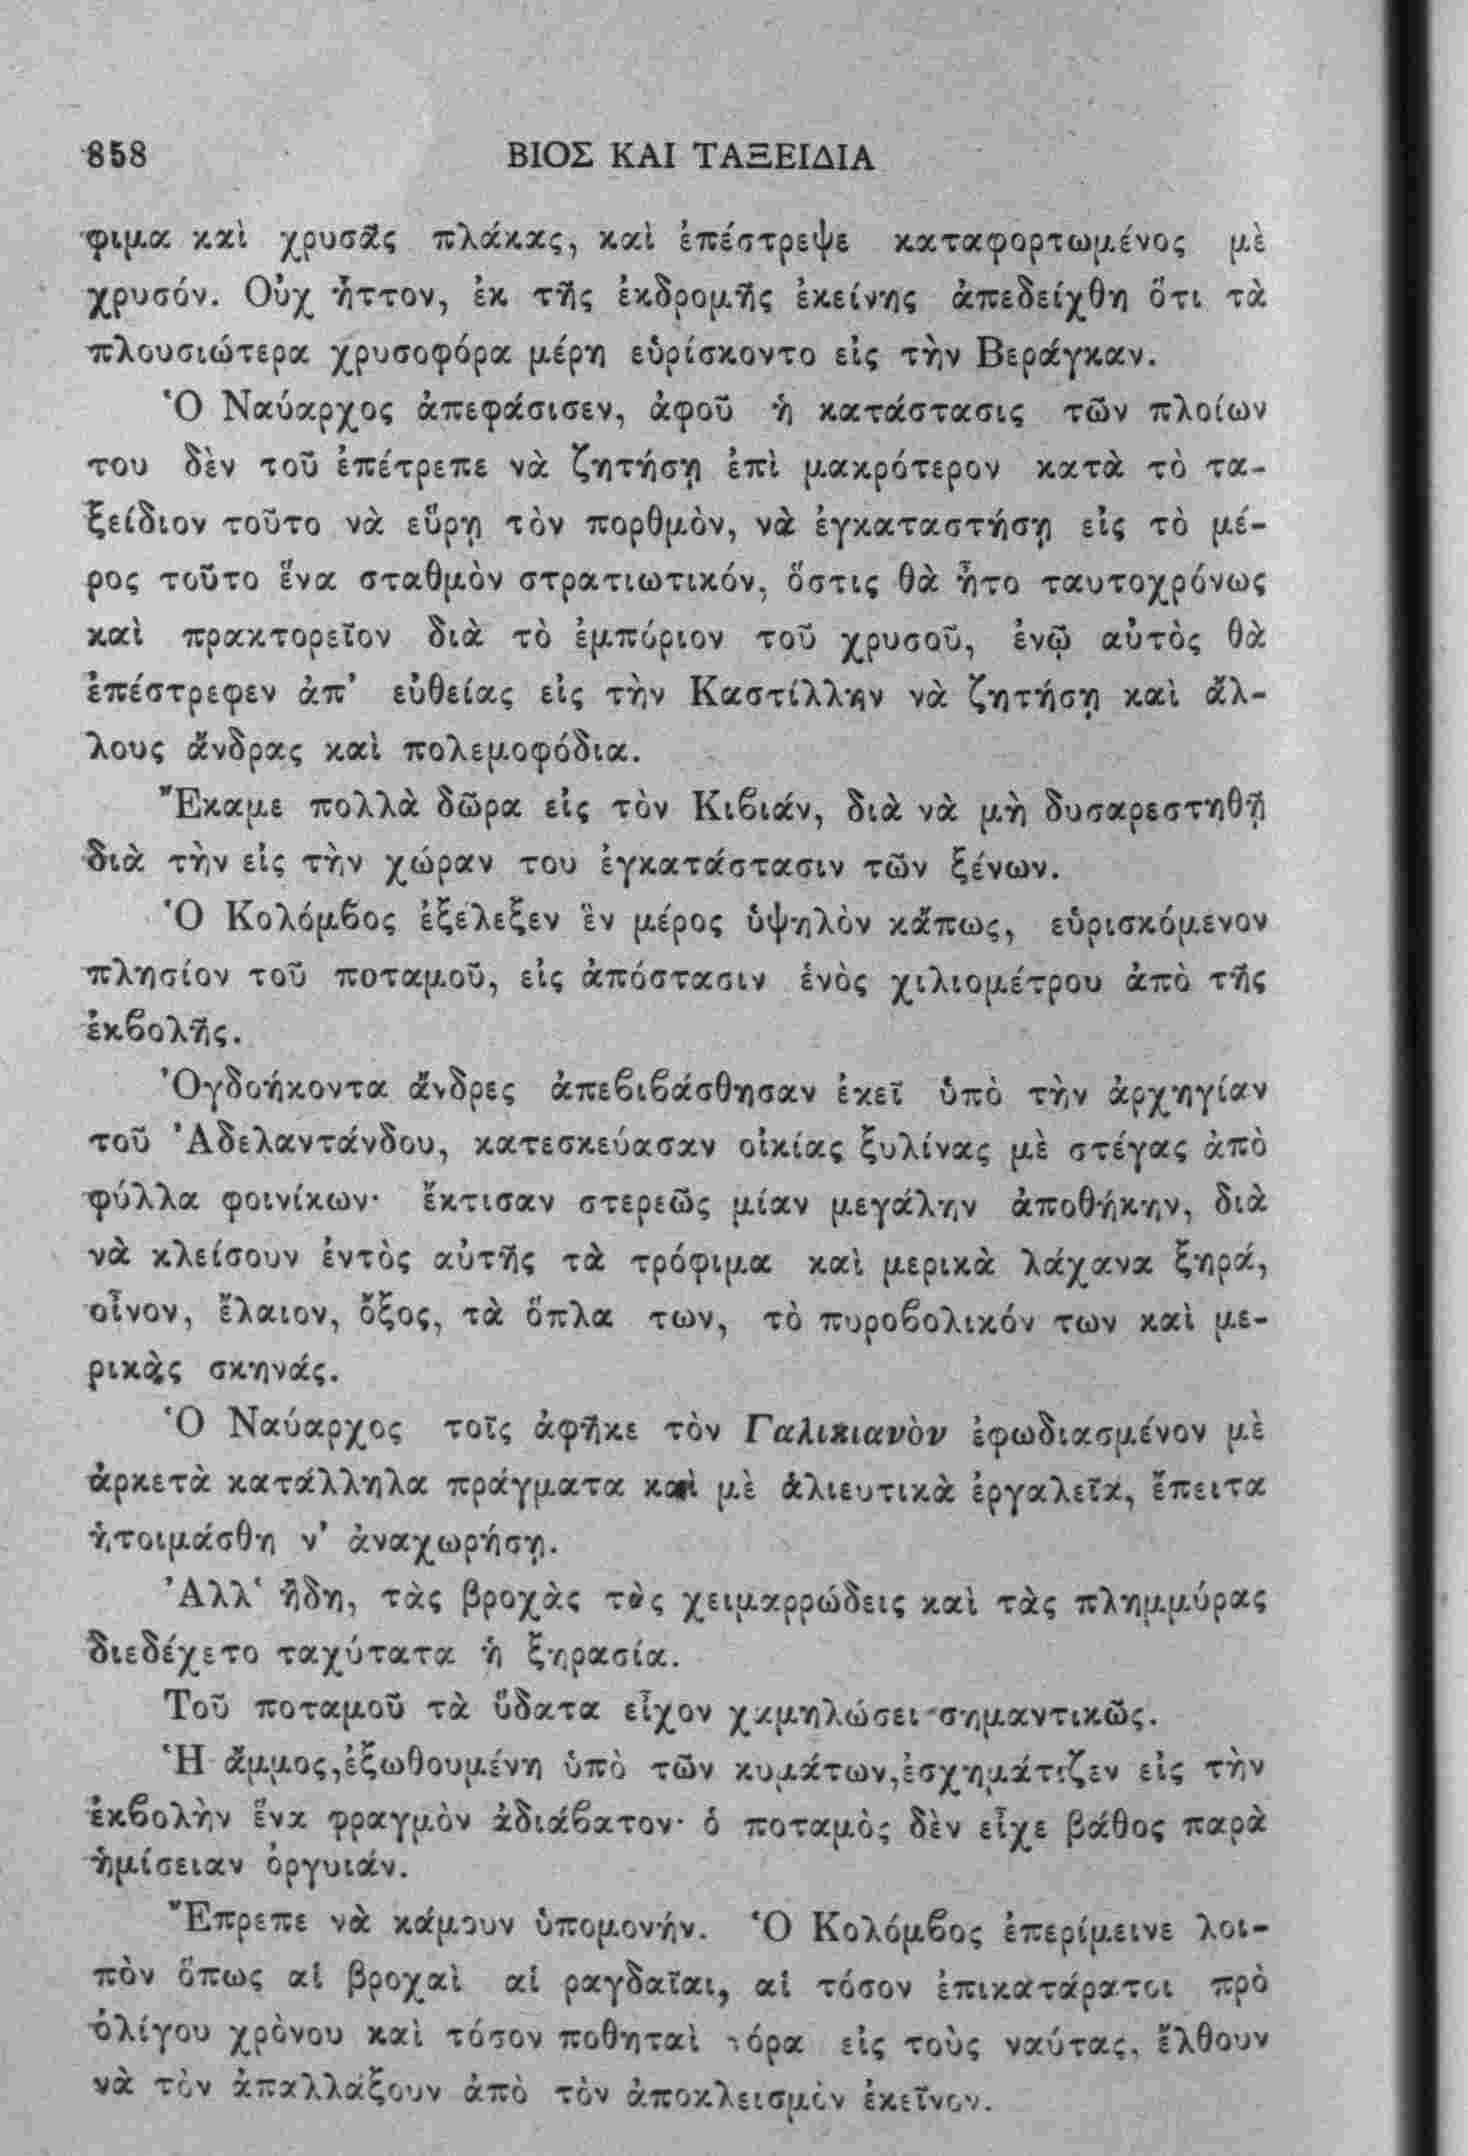 858 ΒΙΟΣ ΚΑΙ ΤΑΞΕΙΔΙΑ
φιμα καὶ χρυσᾶς πλάκας, καὶ ἐπέστρεψε καταφορτωμένος μὲ
χρυσόν. Οὐχ ἧττον, ἐκ τῆς ἐκδρομῆς ἐκείνης ἀπεδείχθη ὅτι τὰ
πλουσιώτερα χρυσοφόρα μέρη εὑρίσκοντο εἰς τὴν Βεράγκαν.
Ὁ Ναύαρχος ἀπεφάσισεν, ἀφοῦ ἡ κατάστασις τῶν πλοίων
του δὲν τοῦ ἐπέτρεπε νὰ ζητήσῃ ἐπὶ μακρότερον κατὰ τὸ τα-
ξείδιον τοῦτο νὰ εὕρῃ τὸν πορθμὸν, νὰ ἐγκαταστήσῃ εἰς τὸ μέ-
ρος τοῦτο ἕνα σταθμὸν στρατιωτικόν, ὅστις θὰ ἦτο ταυτοχρόνως
καὶ πρακτορεῖον διὰ τὸ ἐμπόριον τοῦ χρυσοῦ, ἐνῷ αὐτὸς θὰ
ἐπέστρεφεν ἀπ’ εὐθείας εἰς τὴν Καστίλλην νὰ ζητήσῃ καὶ ἄλ-
λους ἄνδρας καὶ πολεμοφόδια.
Ἔκαμε πολλὰ δῶρα εἰς τὸν Κιβιάν, διὰ νὰ μὴ δυσαρεστηθῇ
διὰ τὴν εἰς τὴν χώραν του ἐγκατάστασιν τῶν ξένων.
Ὁ Κολόμβος ἐξέλεξεν ἓν μέρος ὑψηλὸν κἄπως, εὑρισκόμενον
πλησίον τοῦ ποταμοῦ, εἰς ἀπόστασιν ἑνὸς χιλιομέτρου ἀπὸ τῆς
ἐκβολῆς.
Ὀγδοήκοντα ἄνδρες ἀπεβιβάσθησαν ἐκεῖ ὑπὸ τὴν ἀρχηγίαν
τοῦ Ἀδελαντάνδου, κατεσκεύασαν οἰκίας ξυλίνας μὲ στέγας ἀπὸ
φύλλα φοινίκων· ἔκτισαν στερεῶς μίαν μεγάλην ἀποθήκην, διὰ
νὰ κλείσουν ἐντὸς αὐτῆς τὰ τρόφιμα καὶ μερικὰ λάχανα ξηρά,
οἶνον, ἔλαιον, ὄξος, τὰ ὅπλα των, τὸ πυροβολικόν των καὶ με-
ρικὰς σκηνάς.
Ὁ Ναύαρχος τοῖς ἀφῆκε τὸν Γαλικιανὸν ἐφωδιασμένον μὲ
ἀρκετὰ κατάλληλα πράγματα καὶ μὲ ἁλιευτικὰ ἐργαλεῖα, ἔπειτα
ἡτοιμάσθη ν’ ἀναχωρήσῃ.
Ἀλλ‘ ἤδη, τὰς βροχὰς τὰς χειμαρρώδεις καὶ τὰς πλημμύρας
διεδέχετο ταχύτατα ἡ ξηρασία.
Τοῦ ποταμοῦ τὰ ὕδατα εἶχον χαμηλώσει σημαντικῶς.
Ἡ ἄμμος,ἐξωθουμένη ὑπὸ τῶν κυμάτων,ἐσχημάτιζεν εἰς τὴν
ἐκβολὴν ἕνα φραγμὸν ἀδιάβατον· ὁ ποταμὸς δὲν εἶχε βάθος παρὰ
ἡμίσειαν ὀργυιάν.
Ἔπρεπε νὰ κάμουν ὑπομονήν. Ὁ Κολόμβος ἐπερίμεινε λοι-
πὸν ὅπως αἱ βροχαὶ αἱ ραγδαῖαι, αἱ τόσον ἐπικατάρατοι πρὸ
ὀλίγου χρὸνου καὶ τόσον ποθηταὶ τόρα εἰς τοὺς ναύτας, ἔλθουν
νὰ τὸν ἀπαλλάξουν ἀπὸ τὸν ἀποκλεισμὸν ἐκεῖνον.